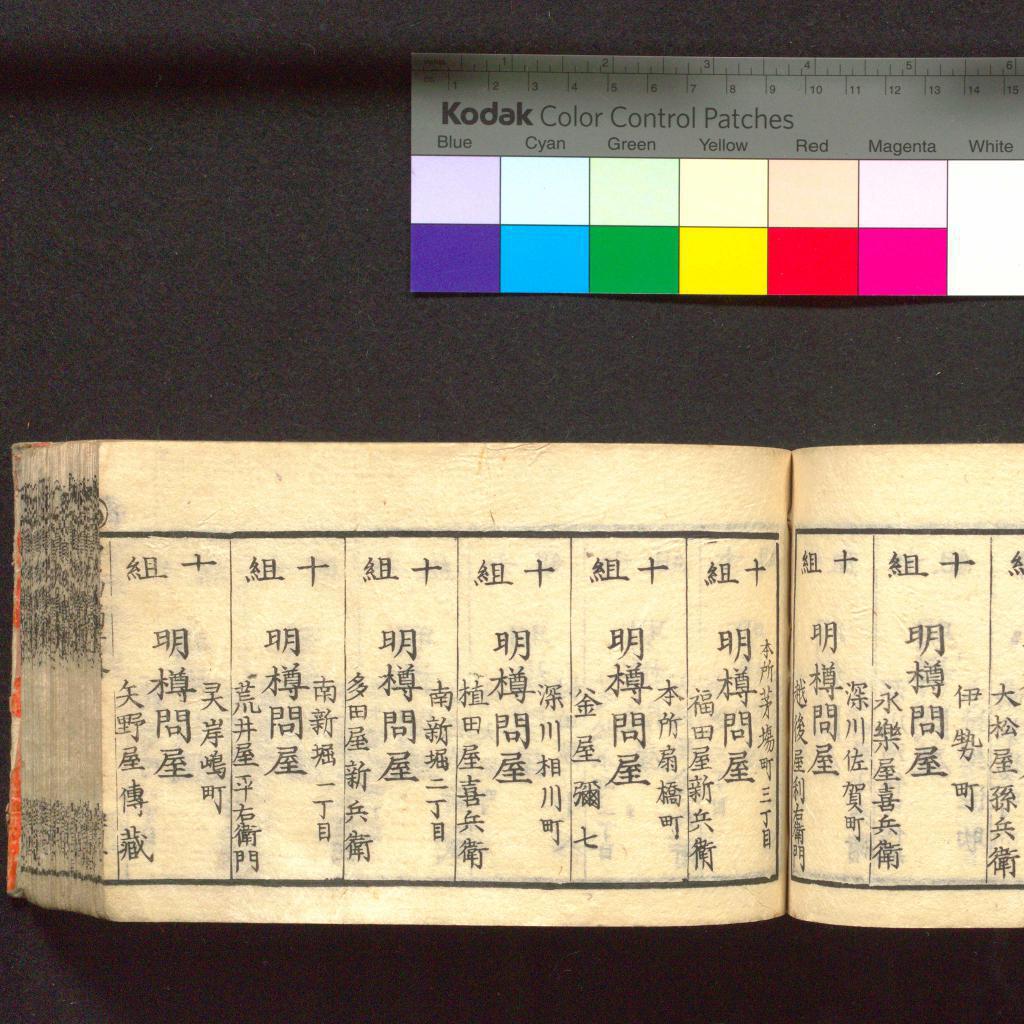 1 2 3 4 5 6
1 2 3 4 5 6 7 8 9 10 11 12 13 14 15
Kodak Color Control Patches
Blue Cyan Green Yellow Red Magenta White
大松屋孫兵衛
十組
伊勢町
明樽問屋
永樂屋喜兵衛
十組
深川佐賀町
明樽問屋
越後屋利右衛門
十組
本所茅場町三丁目
明樽問屋
福田屋新兵衛
十組
本所扇橋町
明樽問屋
釜屋彌七
十組
深川相川町
明樽問屋
植田屋喜兵衛
十組
南新堀二丁目
明樽問屋
多田屋新兵衛
十組
南新堀一丁目
明樽問屋
荒井屋平右衛門
十組
灵岸嶋町
明樽問屋
矢野屋傳藏